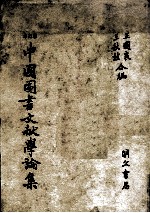 王國良
王秋桂 合編
中國圖書文獻學論集
明文書局